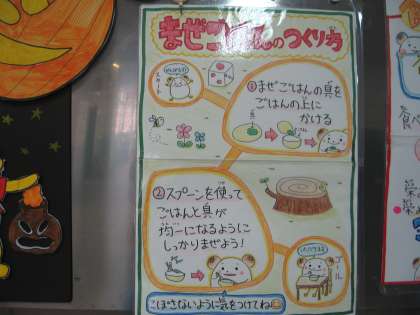 まぜごはんのつくり方
スタート
①まぜごはんの具を
ごはんの上に
かける
②スプーンを使って
ごはんと具が
均一になるように
しっかりまぜよう!
ゴール
こぼさないように気をつけてね